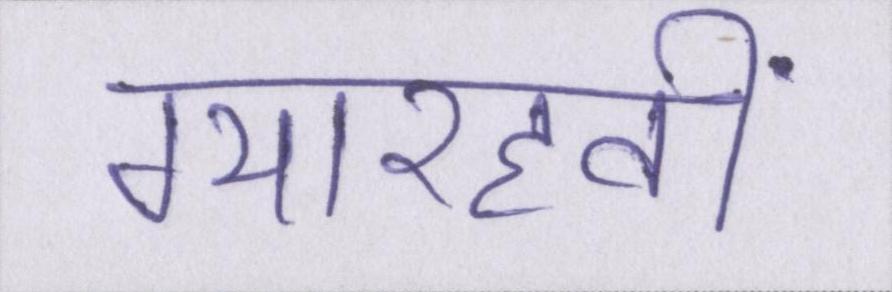 ग्यारहवीं